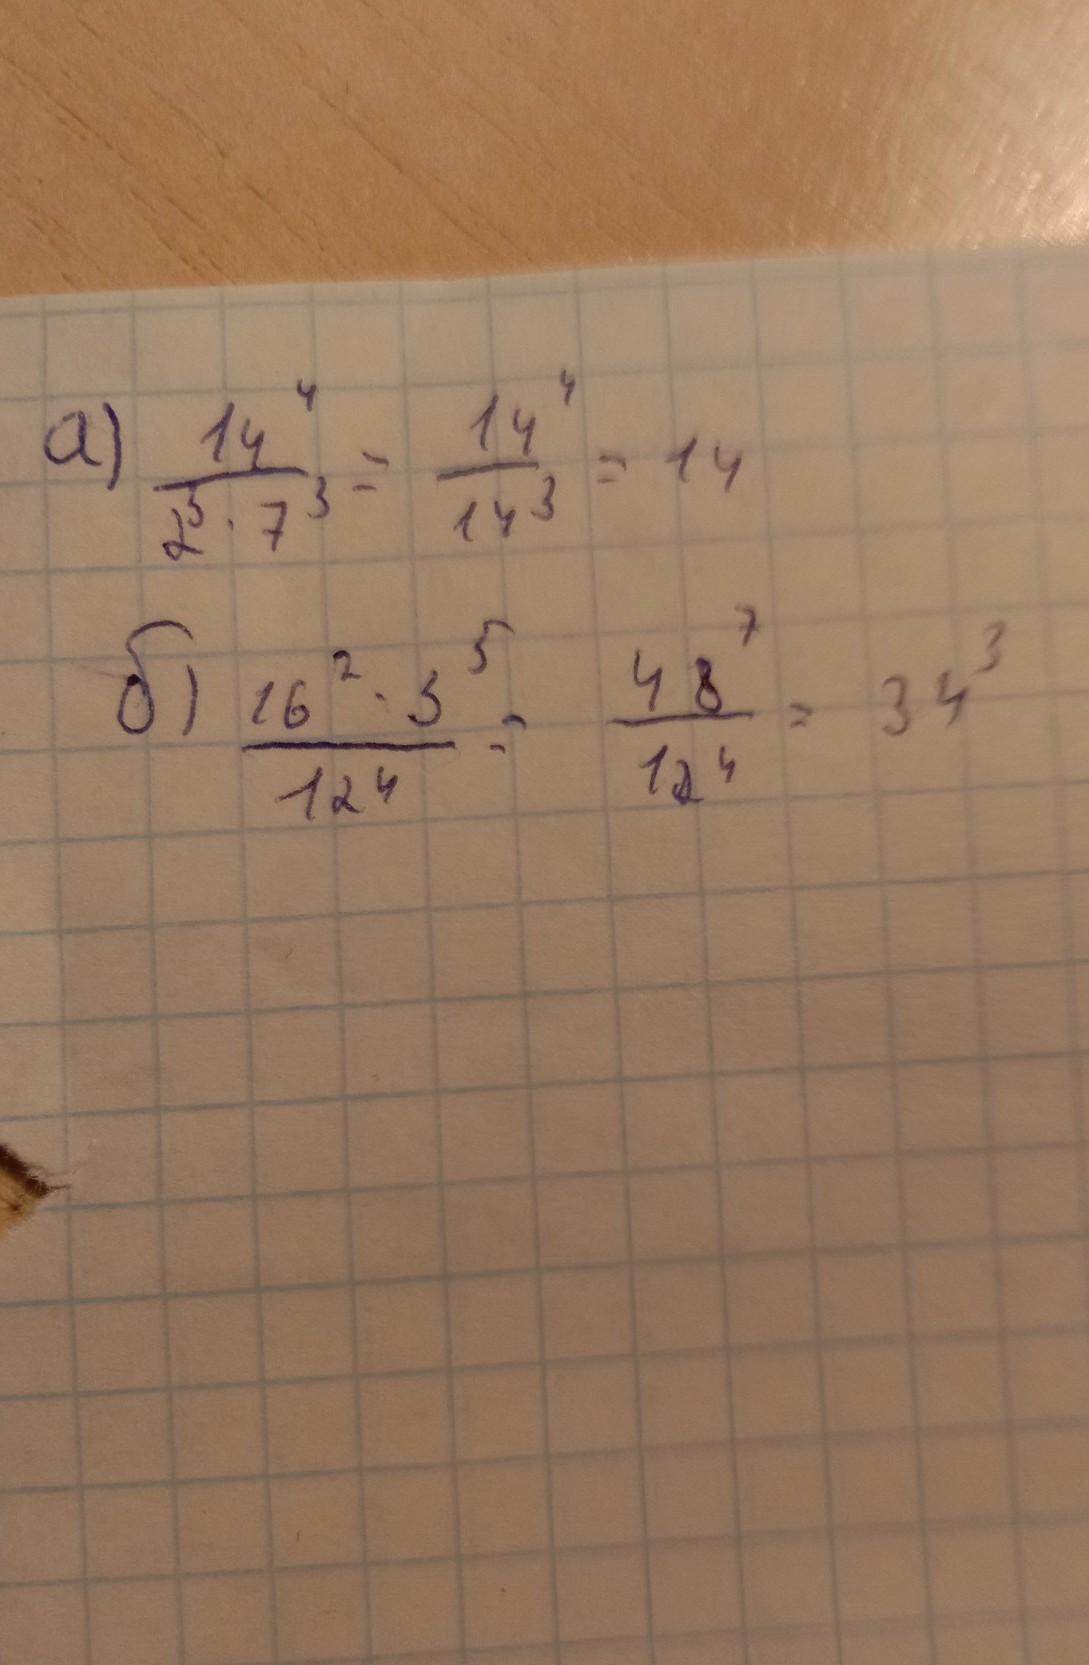 а) 14⁴ / 2³ · 7³ = 14⁴ / 14³ = 14
б) 16² · 3⁵ / 12⁴ = 48⁷ / 12⁴ = 34³